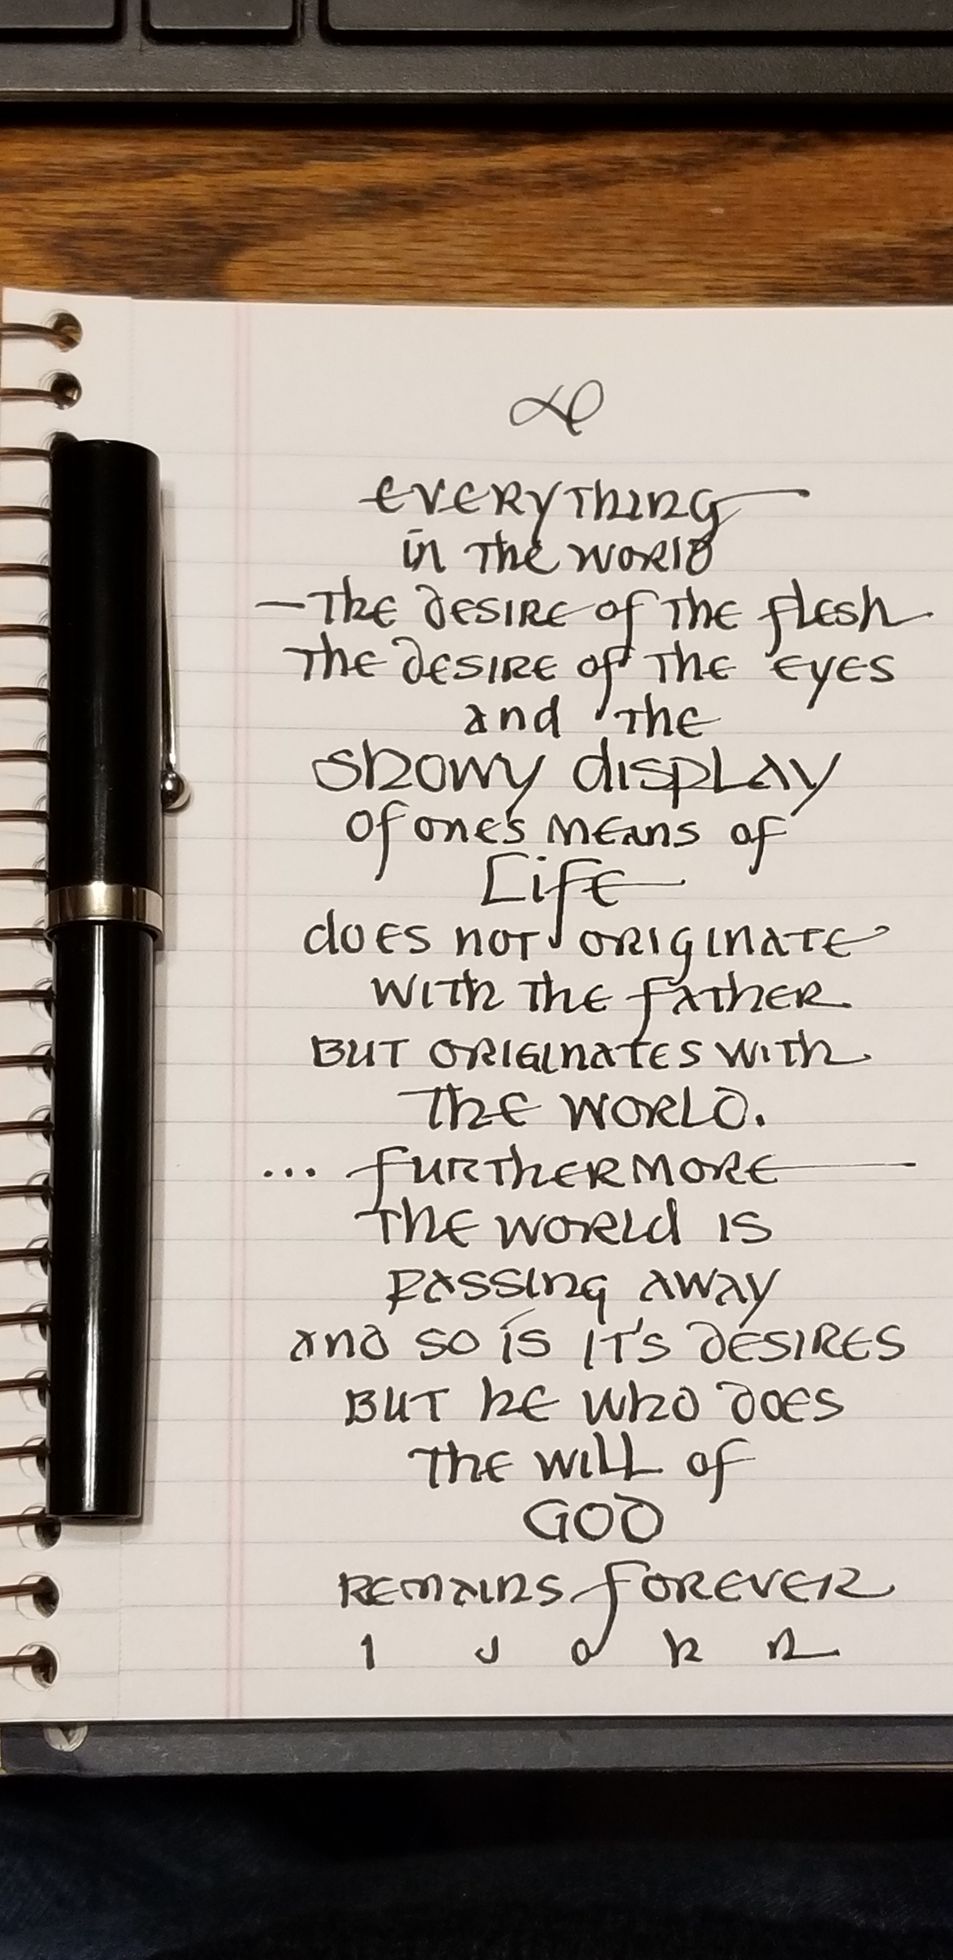 everything
in the world
—the desire of the flesh
the desire of the eyes
and the
showy display
of one's means of
Life
does not originate
with the father
But originates with
the world.
... furthermore
the world is
passing away
and so is it's desires
But he who does
the will of
GOD
remains forever
1 John